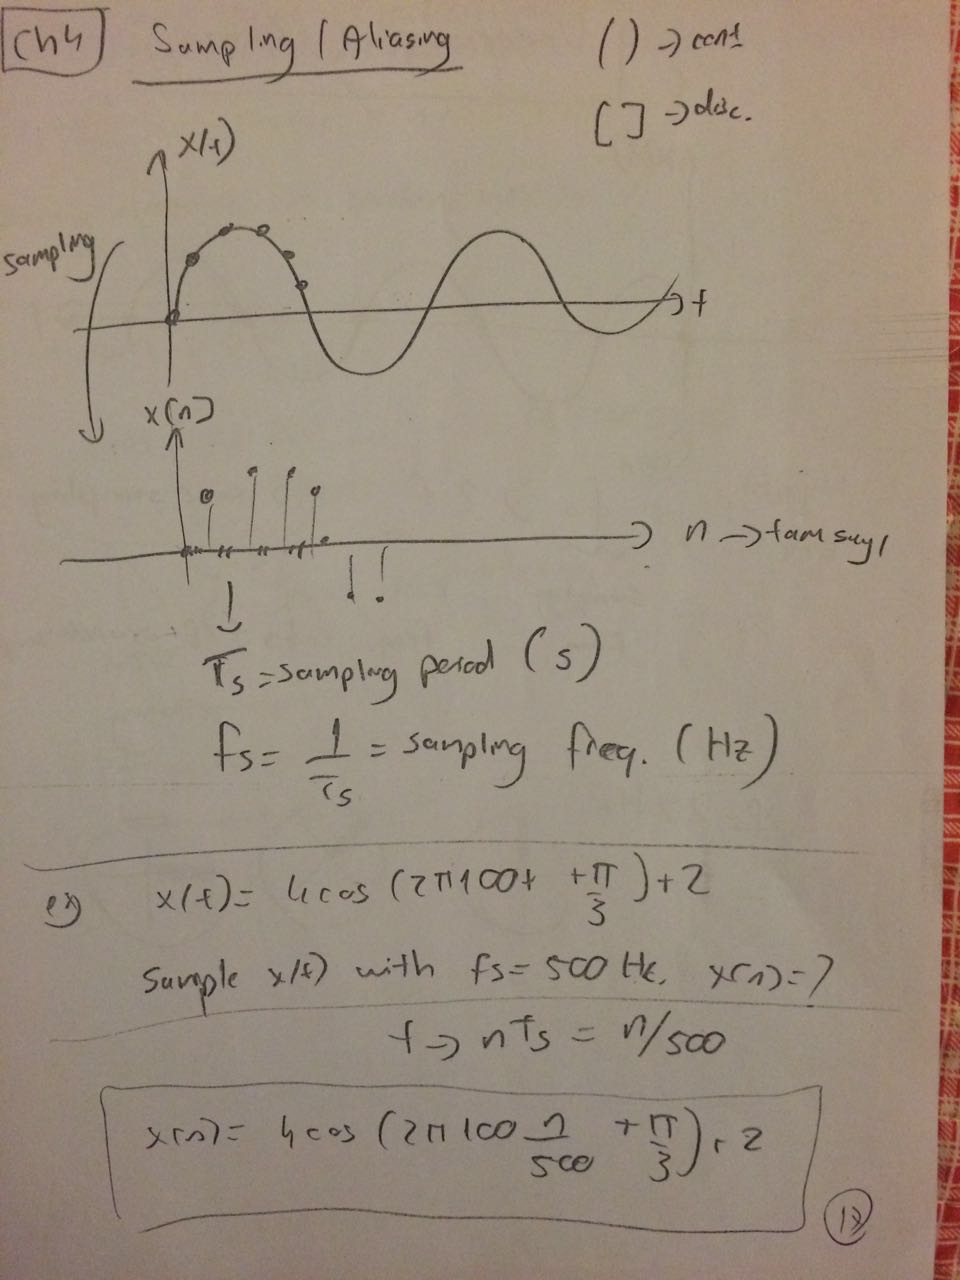 Ch4 Sampling / Aliasing ( ) → cont
[ ] → disc.
x(t)
sampling
t
x[n]
n → tam sayı
Ts = sampling period (s)
fs = 1/Ts = sampling freq. (Hz)
ex) x(t) = 4cos(2π100t + π/3) + 2
Sample x(t) with fs = 500 Hz. x[n] = ?
t → nTs = n/500
x[n] = 4cos(2π100 n/500 + π/3) + 2